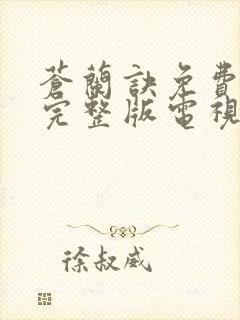 蒼蘭訣免費
完整版電視
徐叔威